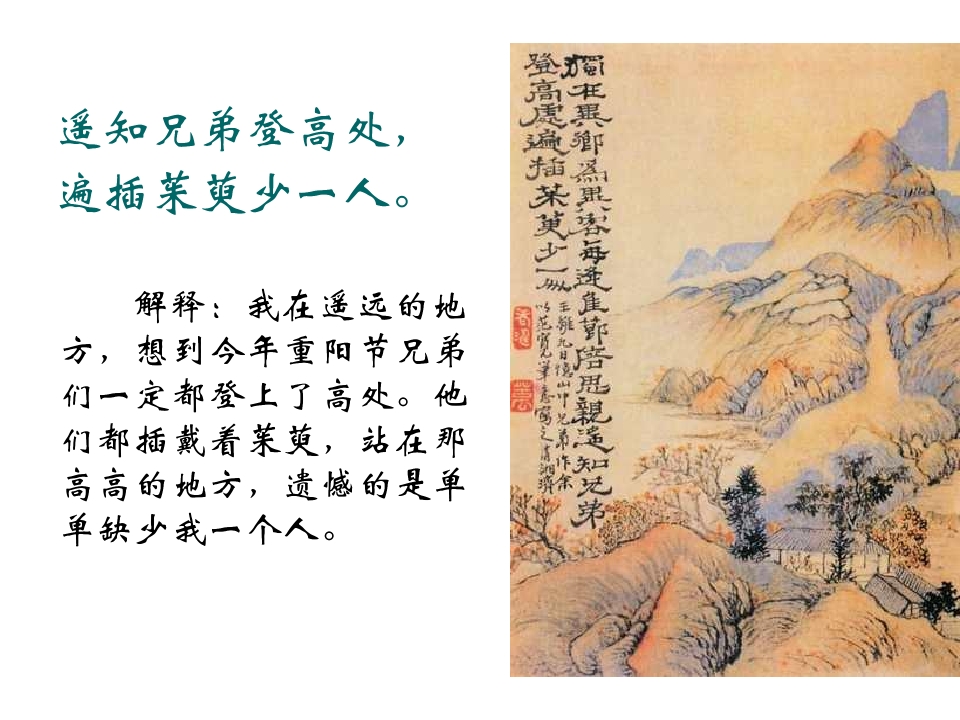 遥知兄弟登高处，
遍插茱萸少一人。
解释：我在遥远的地
方，想到今年重阳节兄弟
们一定都登上了高处。他
们都插戴着茱萸，站在那
高高的地方，遗憾的是单
单缺少我一个人。
獨在異鄉為異客每逢佳節倍思親遙知兄弟
登高處遍插茱萸少一人